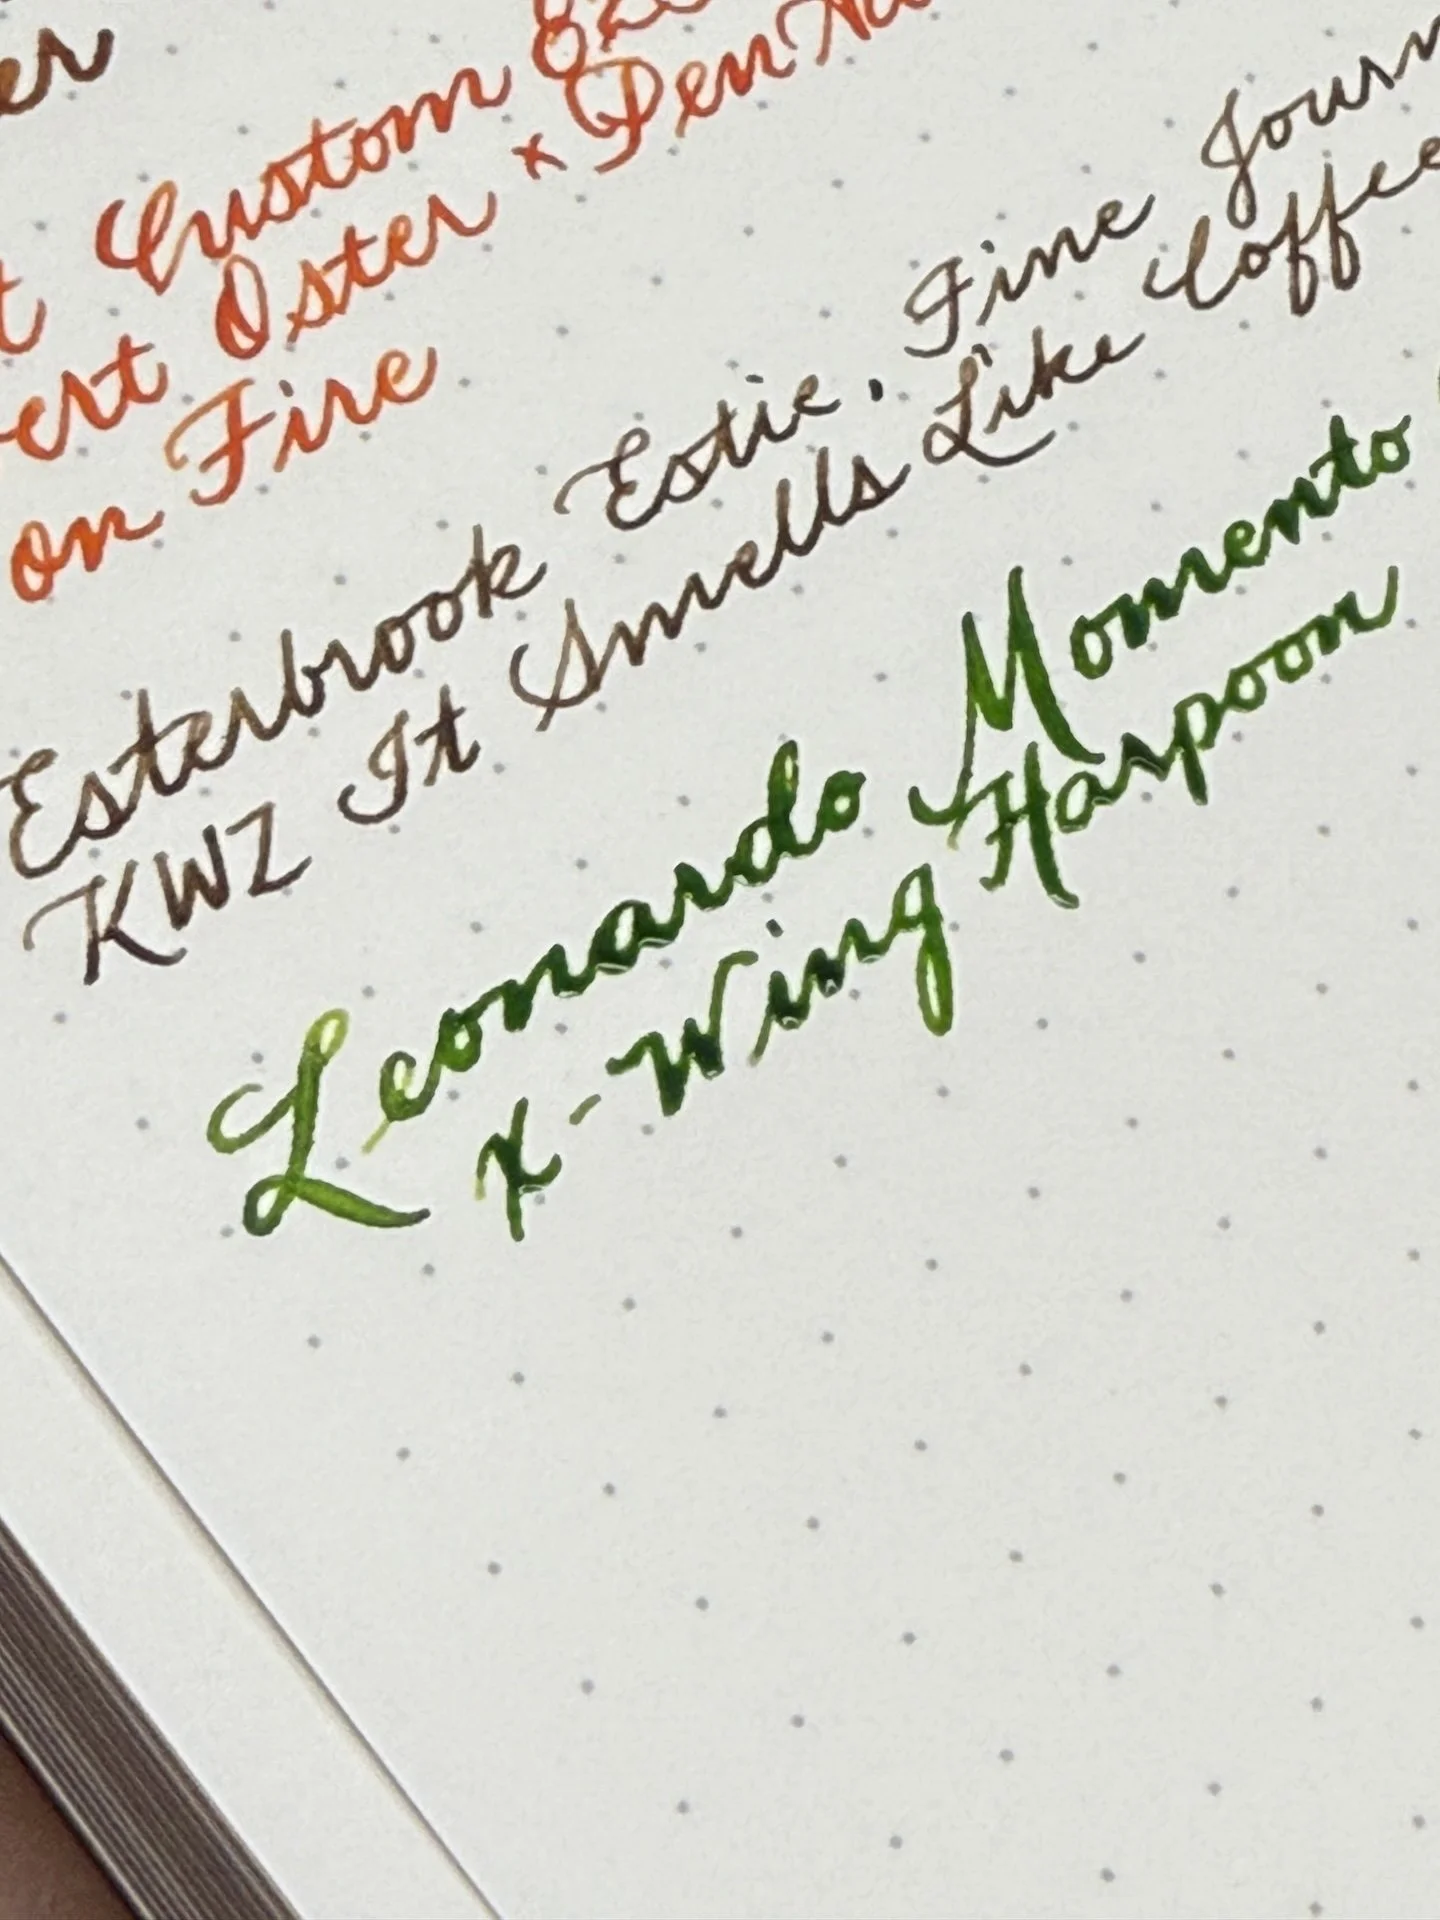 er
Custom 82
ert Oster × Pen
on Fire
Esterbrook Estie. Fine Journ
KWZ It Smells Like Coffee
Leonardo Momento
X-Wing Harpoon